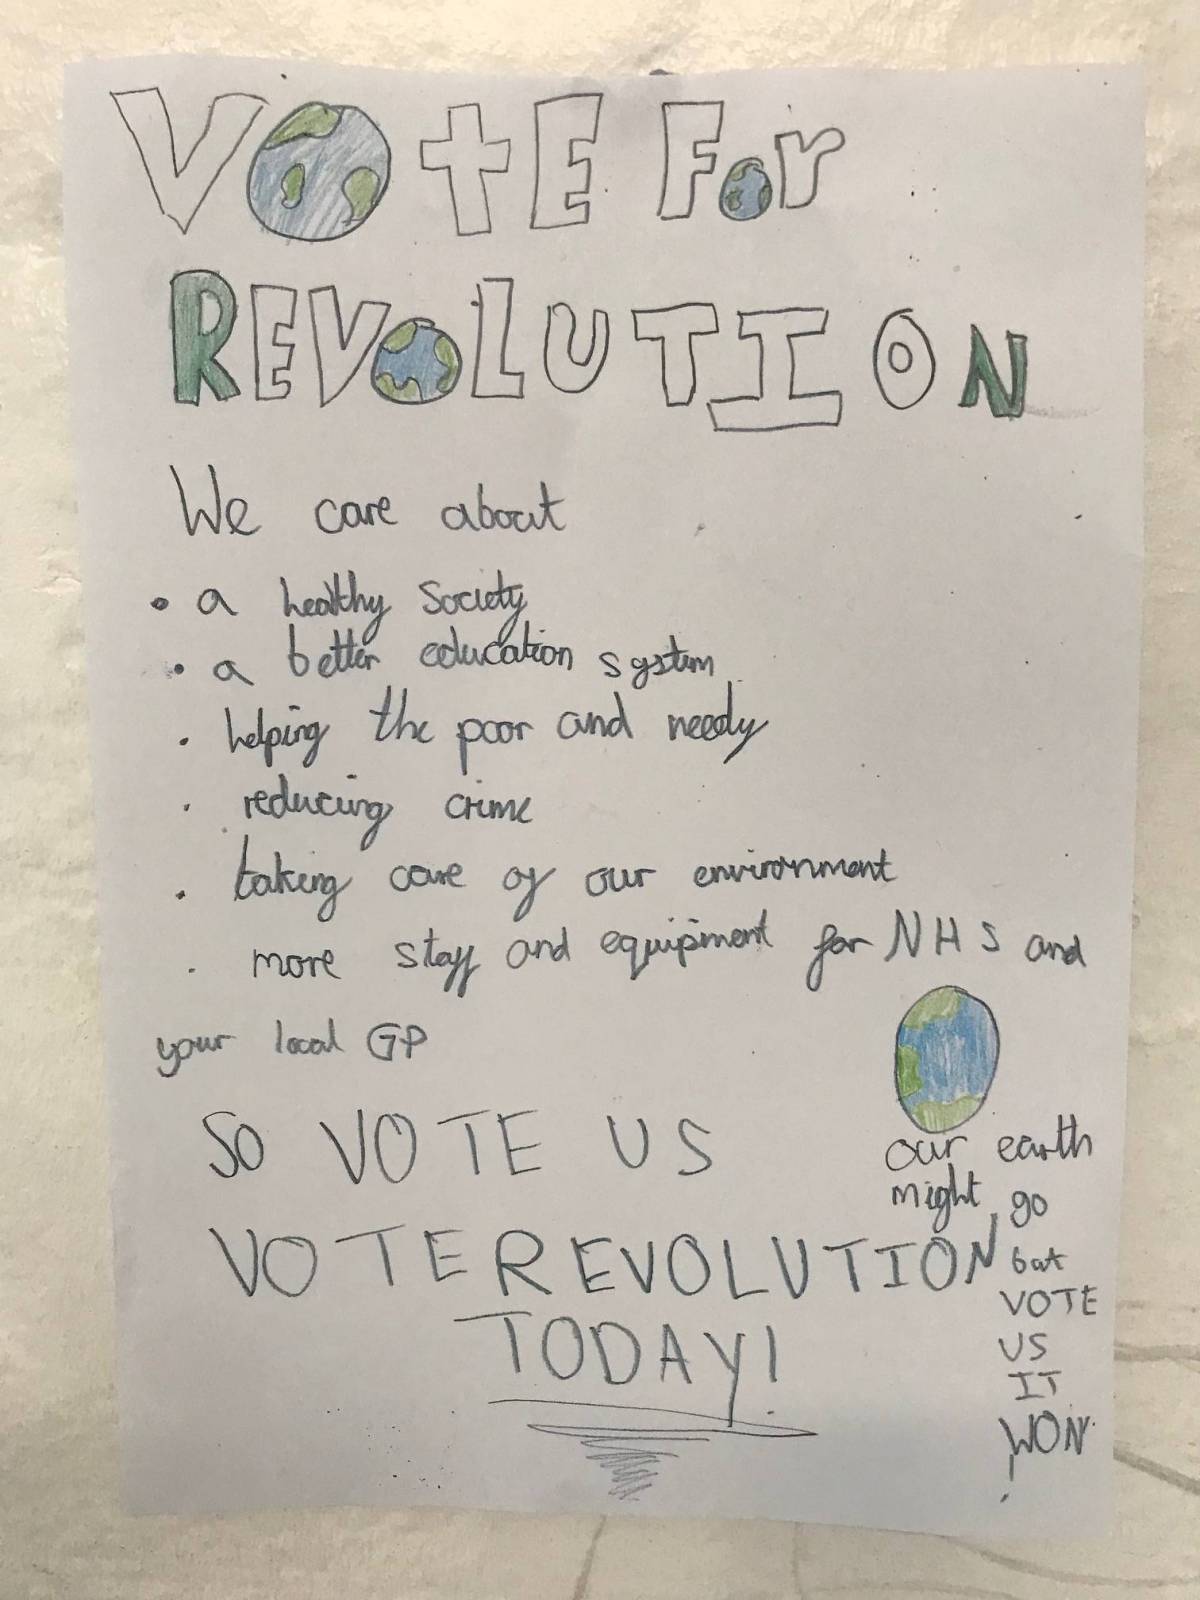 VOTE For
REVOLUTION
We care about
• a healthy society
• a better education system
• helping the poor and needy
• reducing crime
• taking care of our environment
• more staff and equipment for NHS and
your local GP
SO VOTE US
VOTE REVOLUTION
TODAY!
our earth
might go
but
VOTE
US
IT
WON'
!